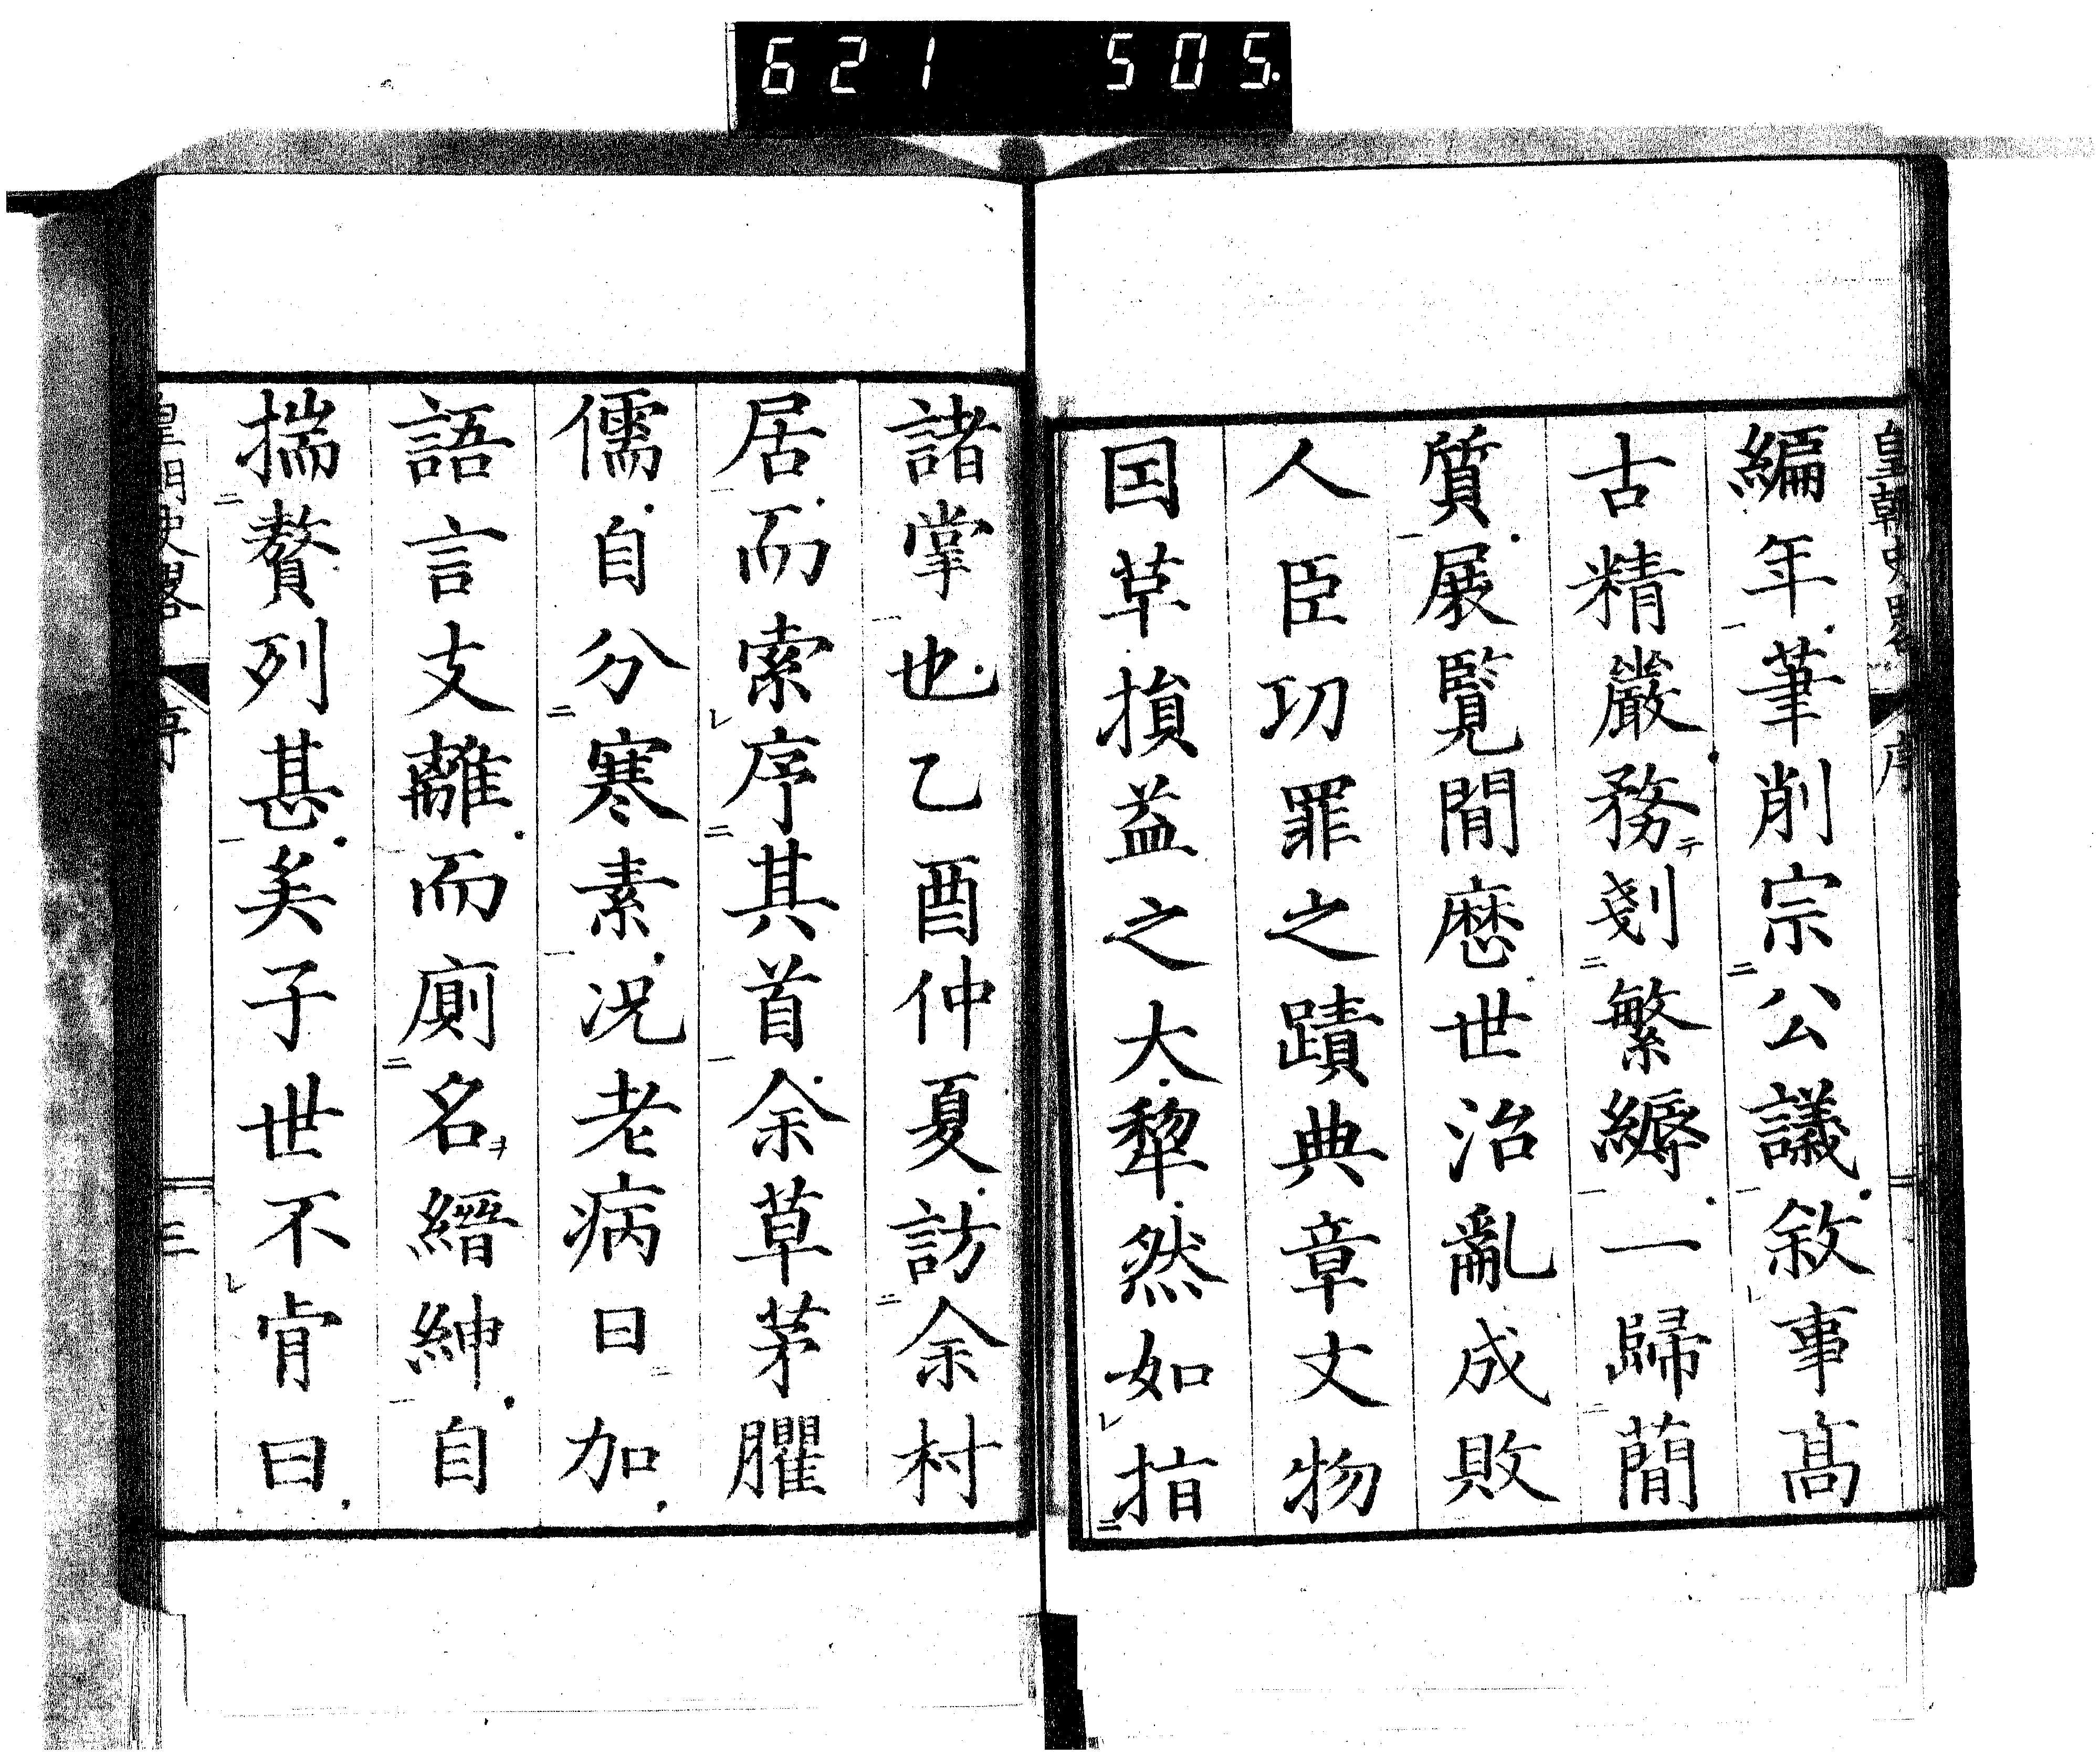 621 505.
皇朝史畧 序
編年筆削宗公議敘事髙
古精嚴務テ剗繁縟一歸蕳
質展覽閒歴世治亂成敗
人臣功罪之蹟典章文物
因草損益之大犂然如指
諸掌也乙酉仲夏訪余村
居而索序其首余草茅臞
儒自分寒素况老病日加
語言支離而厠名ヲ縉紳自
揣贅列甚矣子世不肯曰
皇朝史畧 序 三